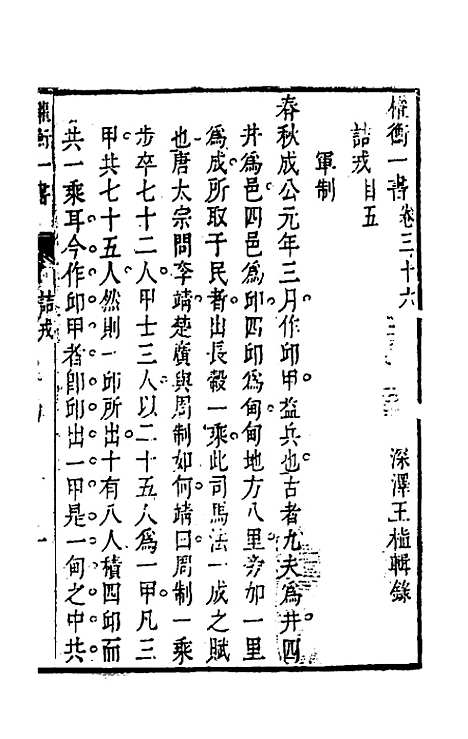 權衡一書卷三十六
深澤王植輯錄
詰戎目五
軍制
春秋成公元年三月作邱甲益兵也古者九夫爲井四
井爲邑四邑爲邱四邱爲甸甸地方八里旁加一里
爲成所取于民者出長轂一乘此司馬法一成之賦
也唐太宗問李靖楚廣與周制如何靖曰周制一乘
步卒七十二人甲士三人以二十五人爲一甲凡三
甲共七十五人然則一邱所出十有八人積四邱而
共一乘耳今作邱甲者卽邱出一甲是一甸之中共
權衡一書
詰戎
一